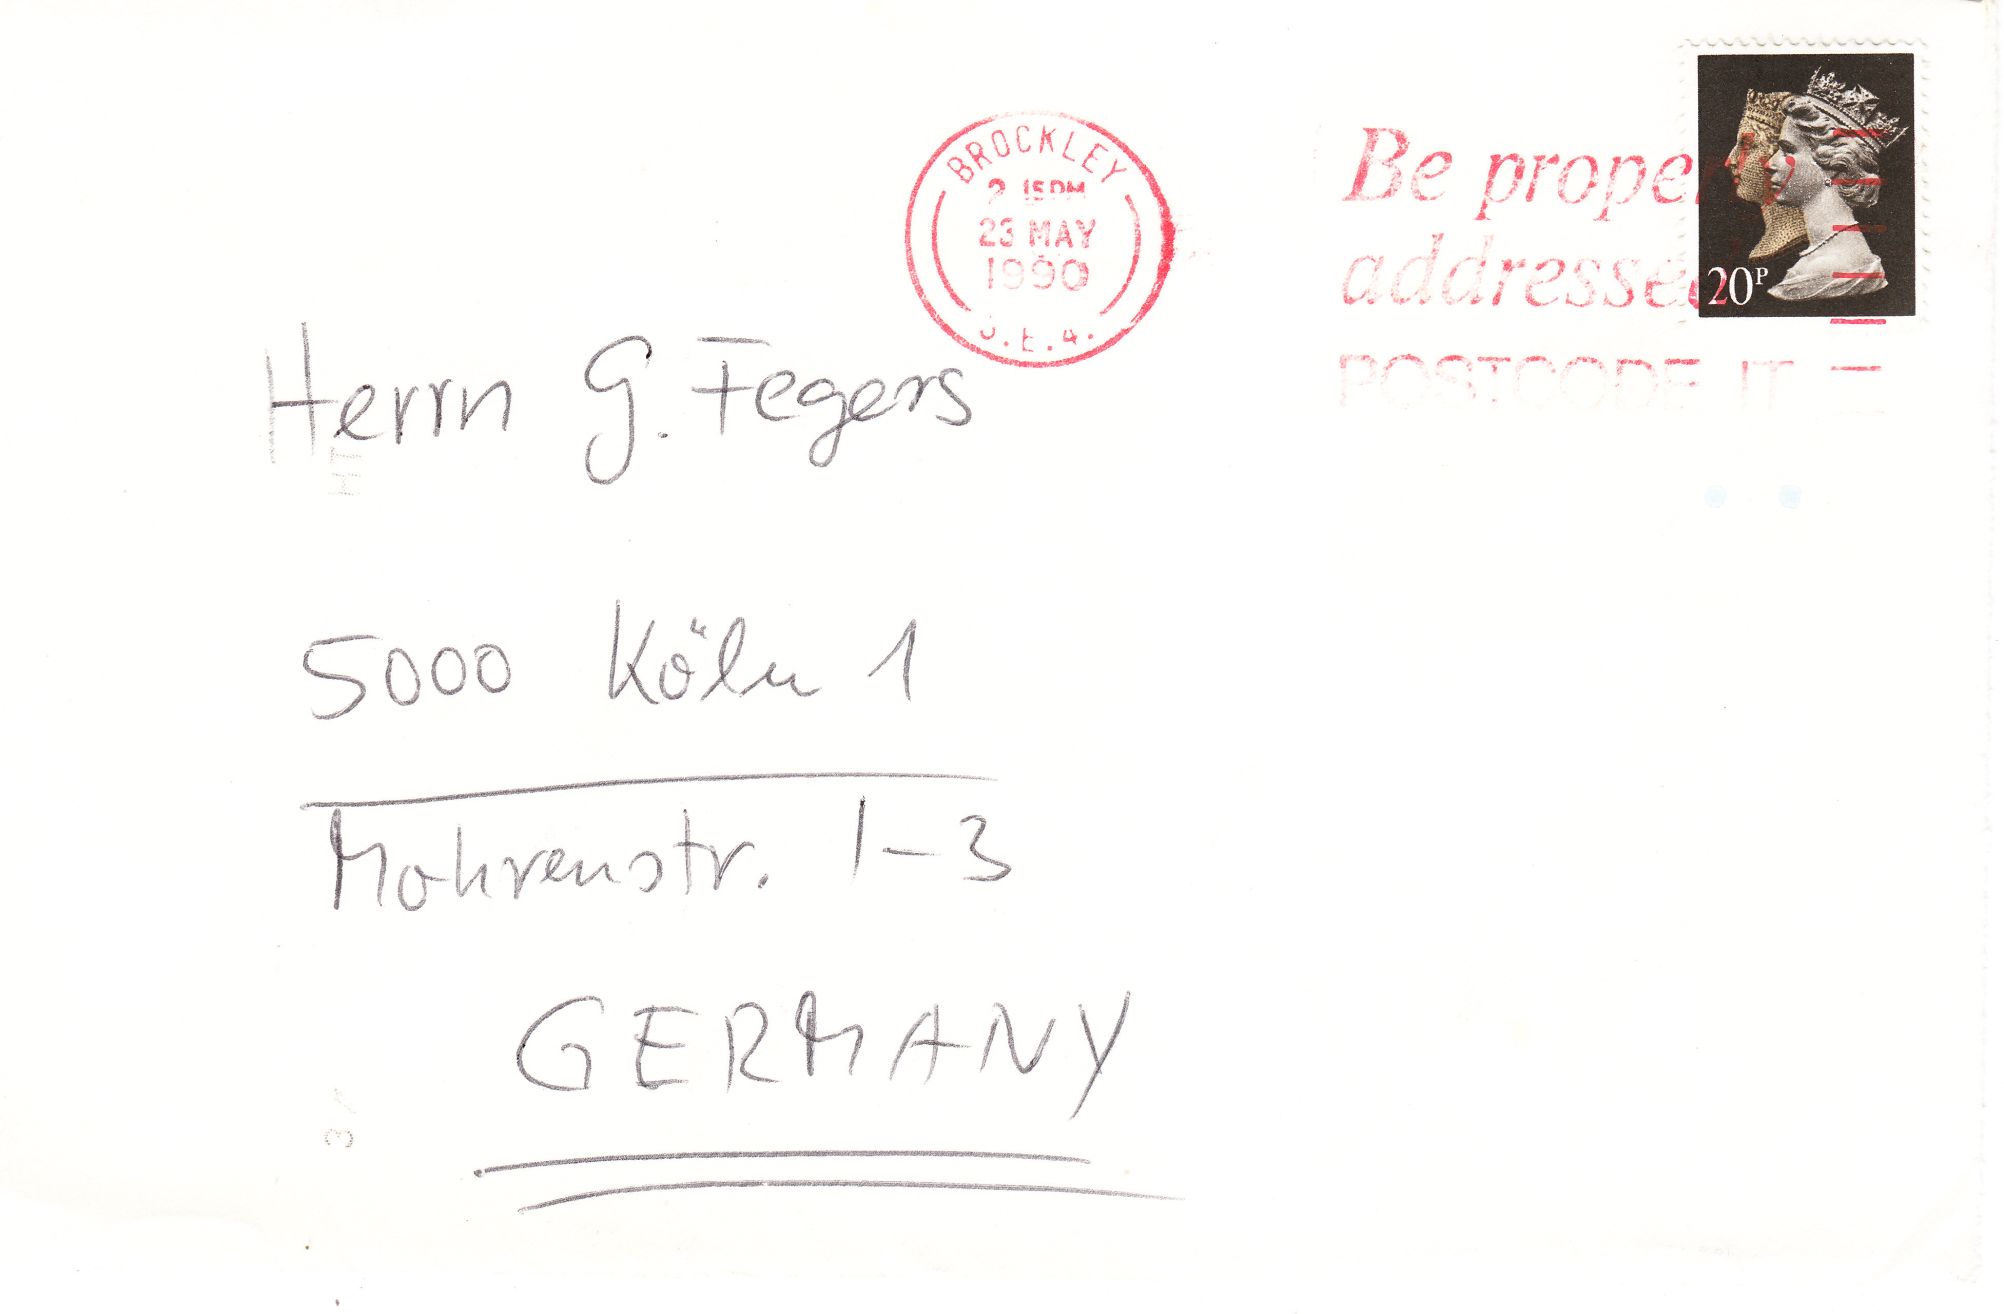 BROCKLEY
2 15 PM
23 MAY
1990
S.E.4.
Be properly
addressed
POSTCODE IT
20P
Herrn G. Fegers
5000 Köln 1
Mohrenstr. 1-3
GERMANY